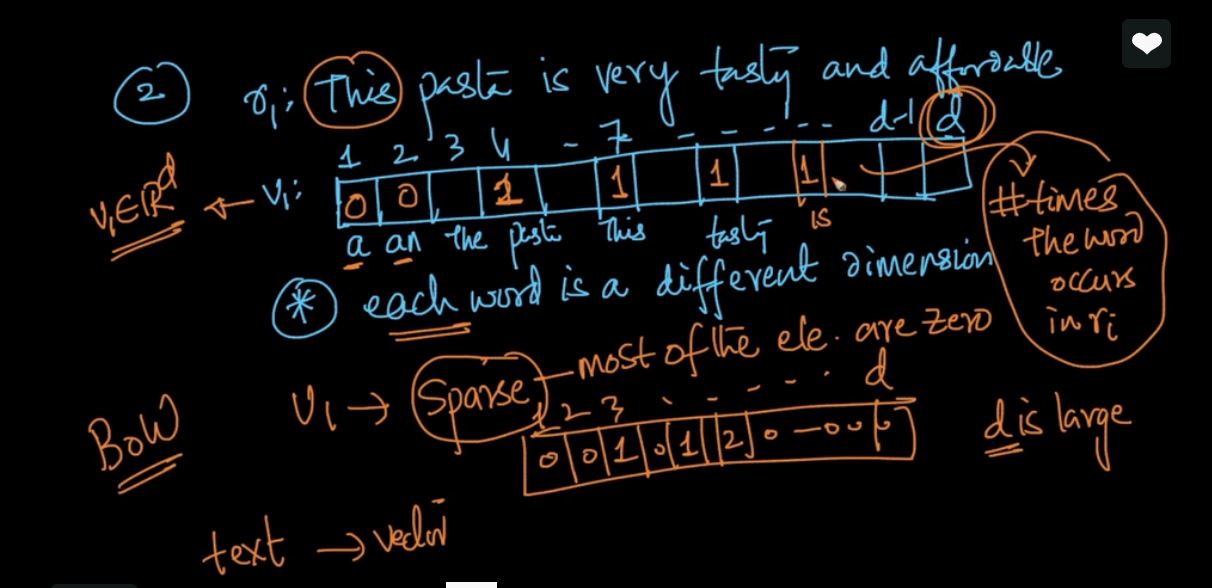 ② r₁: This pasta is very tasty and affordable
1 2 3 4 - 7 - - - - - d-1 d
v₁∈ℝᵈ ← v₁: 0 0 1 1 1 1
a an the pasta This tasty is
#times the word occurs in rᵢ
* each word is a different dimension
v₁ → Sparse - most of the ele. are zero
1 2 3 - - - - - d
0 0 1 0 1 2 0 - 0 0 0
d is large
BoW
text → vector